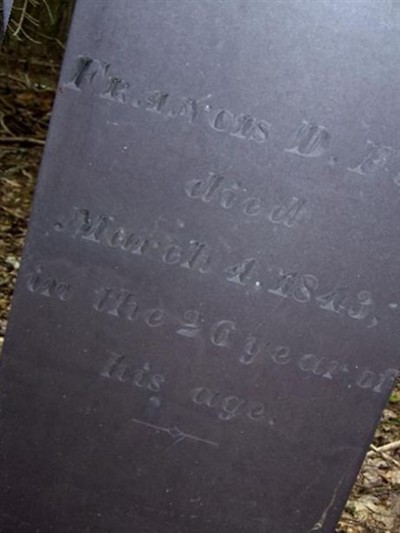 FRANCIS D. F
died
March 4, 1843,
in the 26 year of
his age.